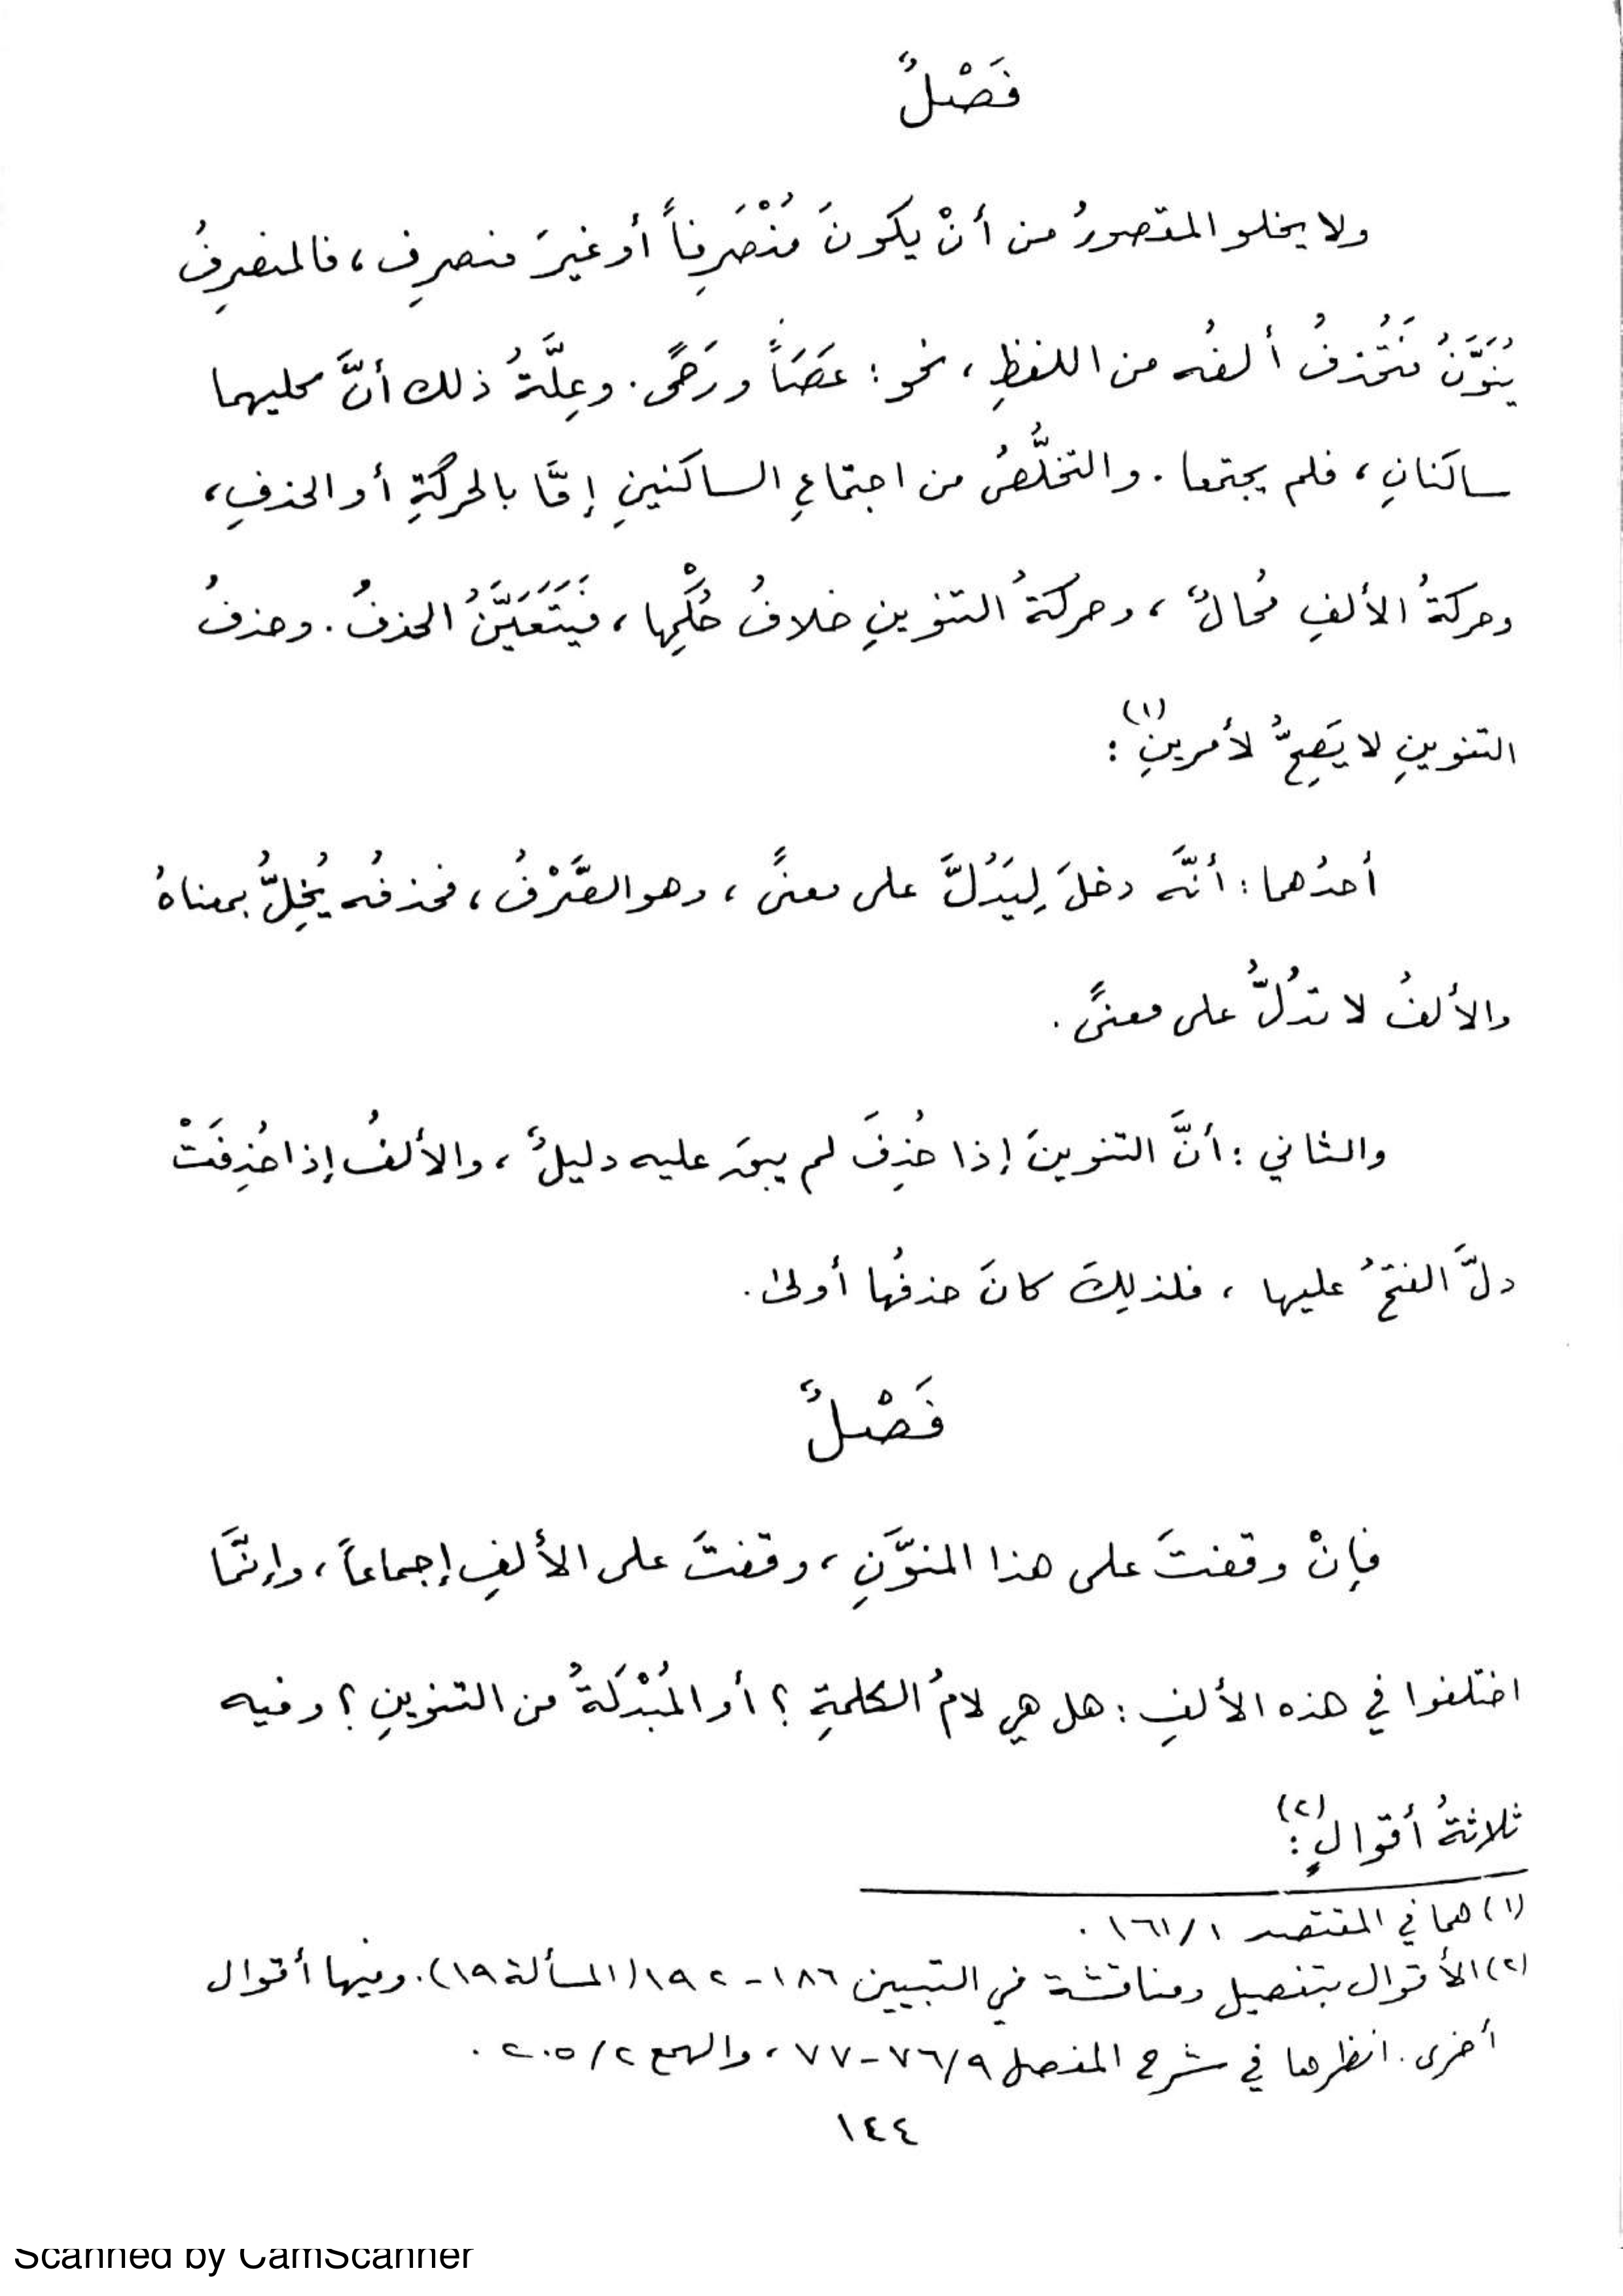 فَصْلٌ
ولا يخلو المقصورُ من أنْ يكونَ مُنْصَرِفاً أو غيرَ منصرِفٍ، فالمنصرِفُ
يُنَوَّنُ فَتُحْذفُ ألفُه من اللفظِ، نحو: عَصَاً ورَحًى. وعِلَّةُ ذلك أنَّ كليهما
ساكنانِ، فلم يجتمعا. والتخلُّصُ من اجتماعِ الساكنينِ إمَّا بالحركَةِ أو الحذفِ،
وحركةُ الألفِ مُحالٌ، وحركةُ التنوينِ خلافُ حُكْمِها، فَيَتَعَيَّنُ الحذفُ. وحذفُ
التنوينِ لا يَصِحُّ لأمرينِ(١):
أحدُهما: أنَّه دخلَ لِيَدُلَّ على معنىً، وهو الصَّرْفُ، فحذفُه يُخِلُّ بمعناهُ
والألفُ لا تدُلُّ على معنىً.
والثاني: أنَّ التنوينَ إذا حُذِفَ لم يبقَ عليه دليلٌ، والألفُ إذا حُذِفَتْ
دلَّ الفتحُ عليها، فلذلِكَ كانَ حذفُها أولىٰ.
فَصْلٌ
فإنْ وقفتَ على هذا المنوَّنِ، وقفتَ على الألفِ إجماعاً، وإنَّمَا
اختلفوا في هذه الألفِ: هل هي لامُ الكلمةِ؟ أو المُبْدَلَةُ من التنوينِ؟ وفيه
ثلاثةُ أقوالٍ(٢):
(١) هما في المقتصد ١٦١/١.
(٢) الأقوال بتفصيل ومناقشة في التبيين ١٨٦-١٩٢ (المسألة ١٩). وفيها أقوال
أخرى. انظرها في شرح المفصل ٧٦/٩-٧٧، والهمع ٢٠٥/٢.
١٤٤
Scanned by CamScanner